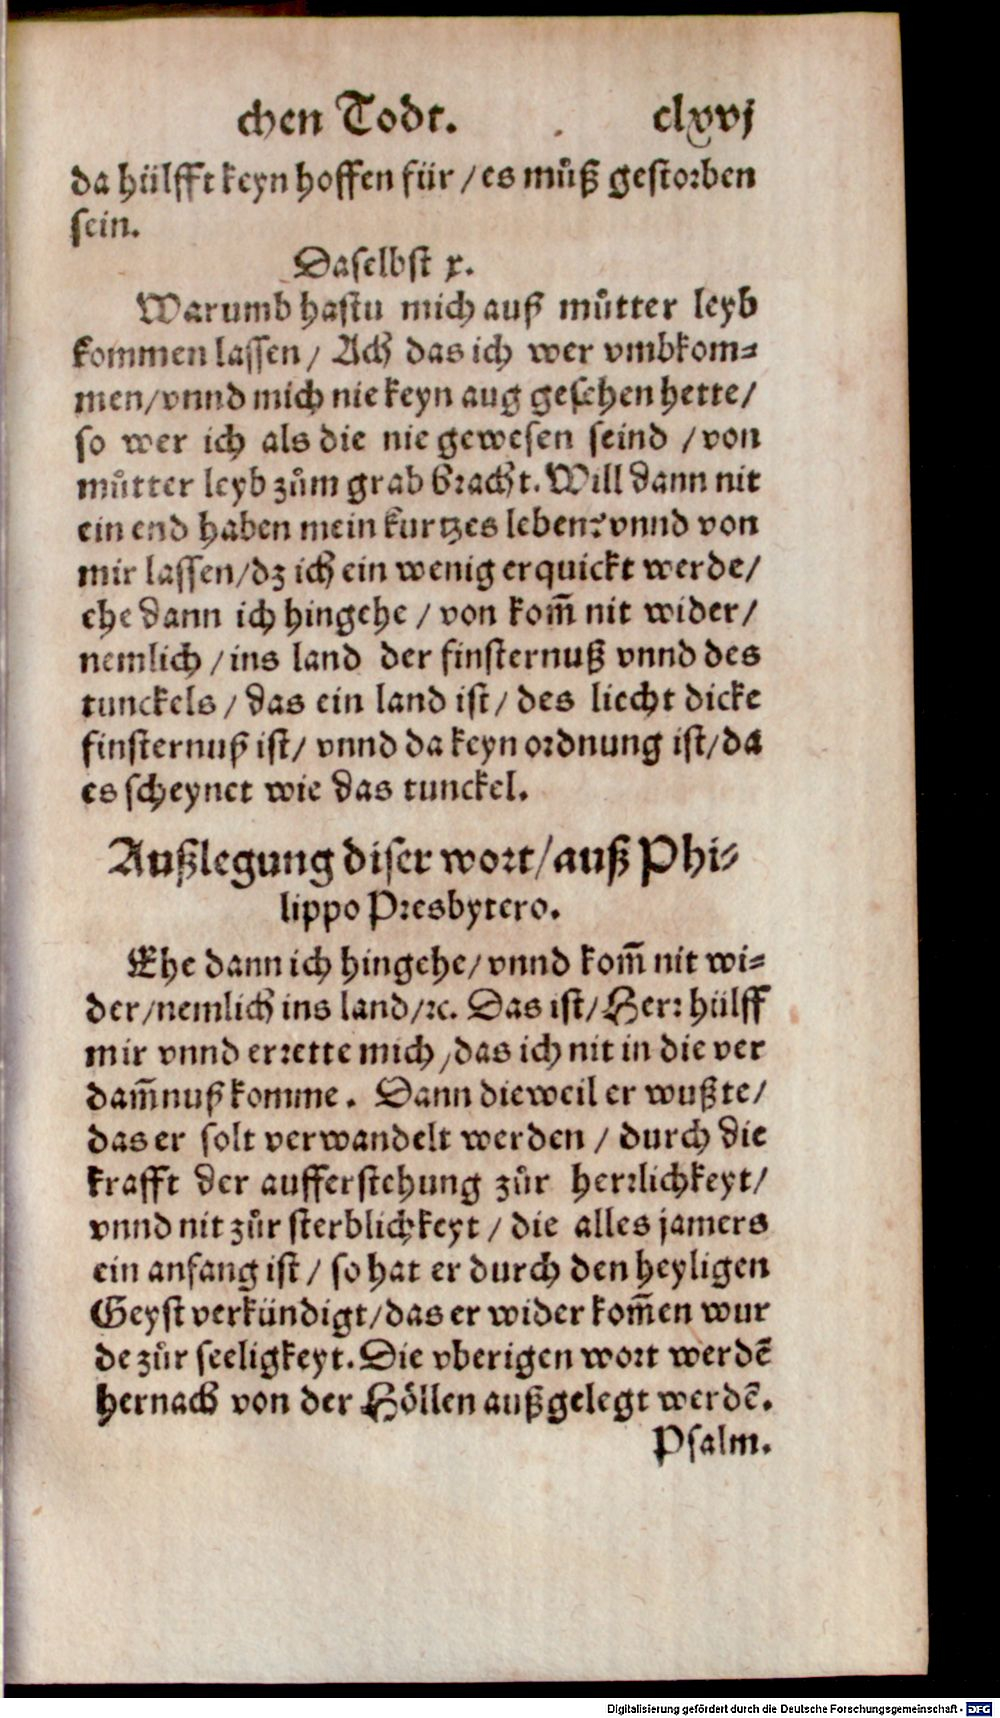 chen Todt. clxvj
da hülfft keyn hoffen für / es můß gestorben
sein.
Daselbst x.
Warumb hastu mich auß můtter leyb
kommen lassen / Ach das ich wer vmbkom⸗
men/vnnd mich nie keyn aug gesehen hette/
so wer ich als die nie gewesen seind / von
můtter leyb zům grab bracht. Will dann nit
ein end haben mein kurtzes leben? vnnd von
mir lassen/dz ich ein wenig erquickt werde/
ehe dann ich hingehe / von kom̃ nit wider/
nemlich / ins land der finsternuß vnnd des
tunckels / das ein land ist / des liecht dicke
finsternuß ist/ vnnd da keyn ordnung ist/da
es scheynet wie das tunckel.
Außlegung diser wort/auß Phi⸗
lippo Presbytero.
Ehe dann ich hingehe/ vnnd kom̃ nit wi⸗
der/nemlich ins land/ꝛc. Das ist/ Herr hülff
mir vnnd errette mich /das ich nit in die ver
dam̃nuß komme. Dann dieweil er wußte/
das er solt verwandelt werden / durch die
krafft der aufferstehung zůr herrlichkeyt/
vnnd nit zůr sterblichkeyt / die alles jamers
ein anfang ist / so hat er durch den heyligen
Geyst verkündigt/das er wider kom̃en wur
de zůr seeligkeyt. Die vberigen wort werdẽ
hernach von der Höllen außgelegt werdẽ.
Psalm.
Digitalisierung gefördert durch die Deutsche Forschungsgemeinschaft - DFG